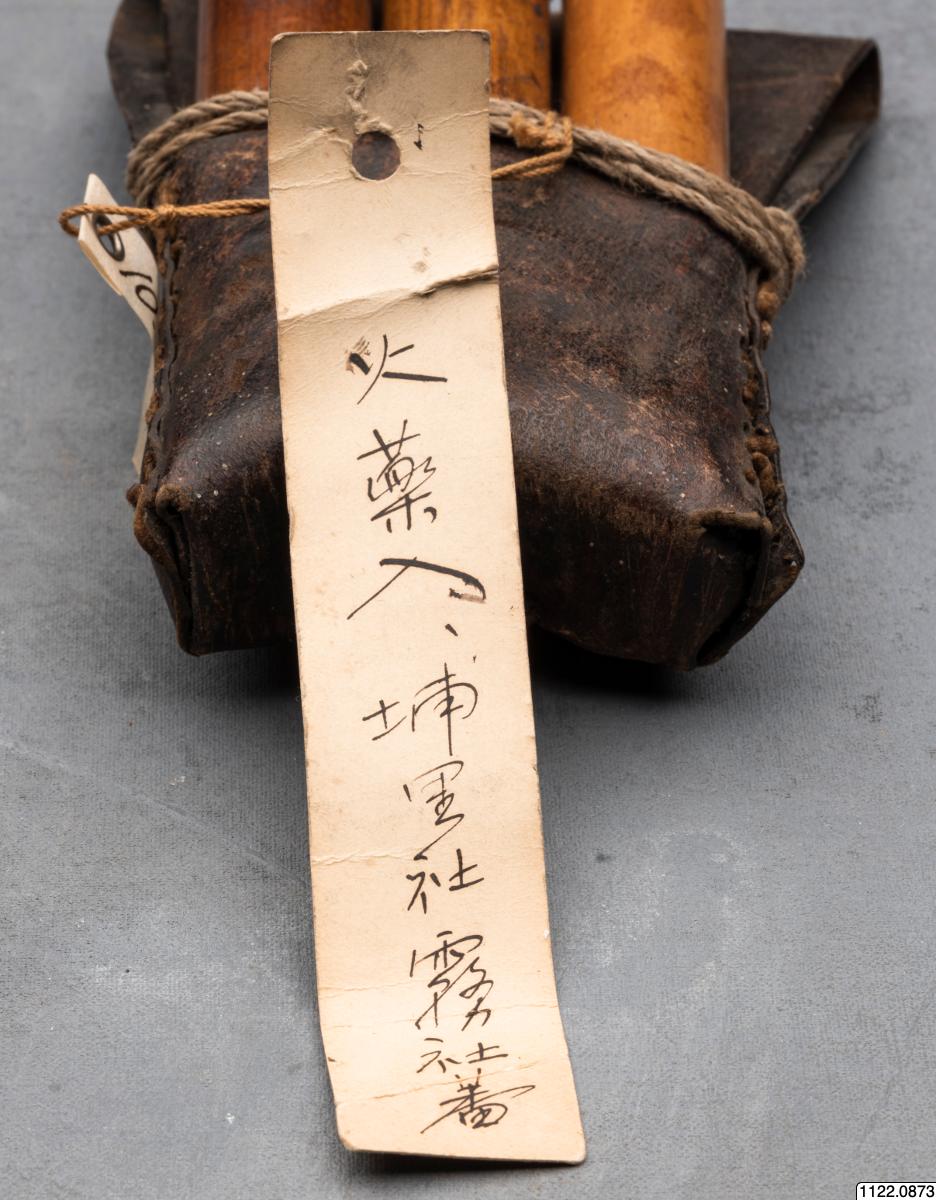 火薬入、埔里社霧社蕃
1122.0873